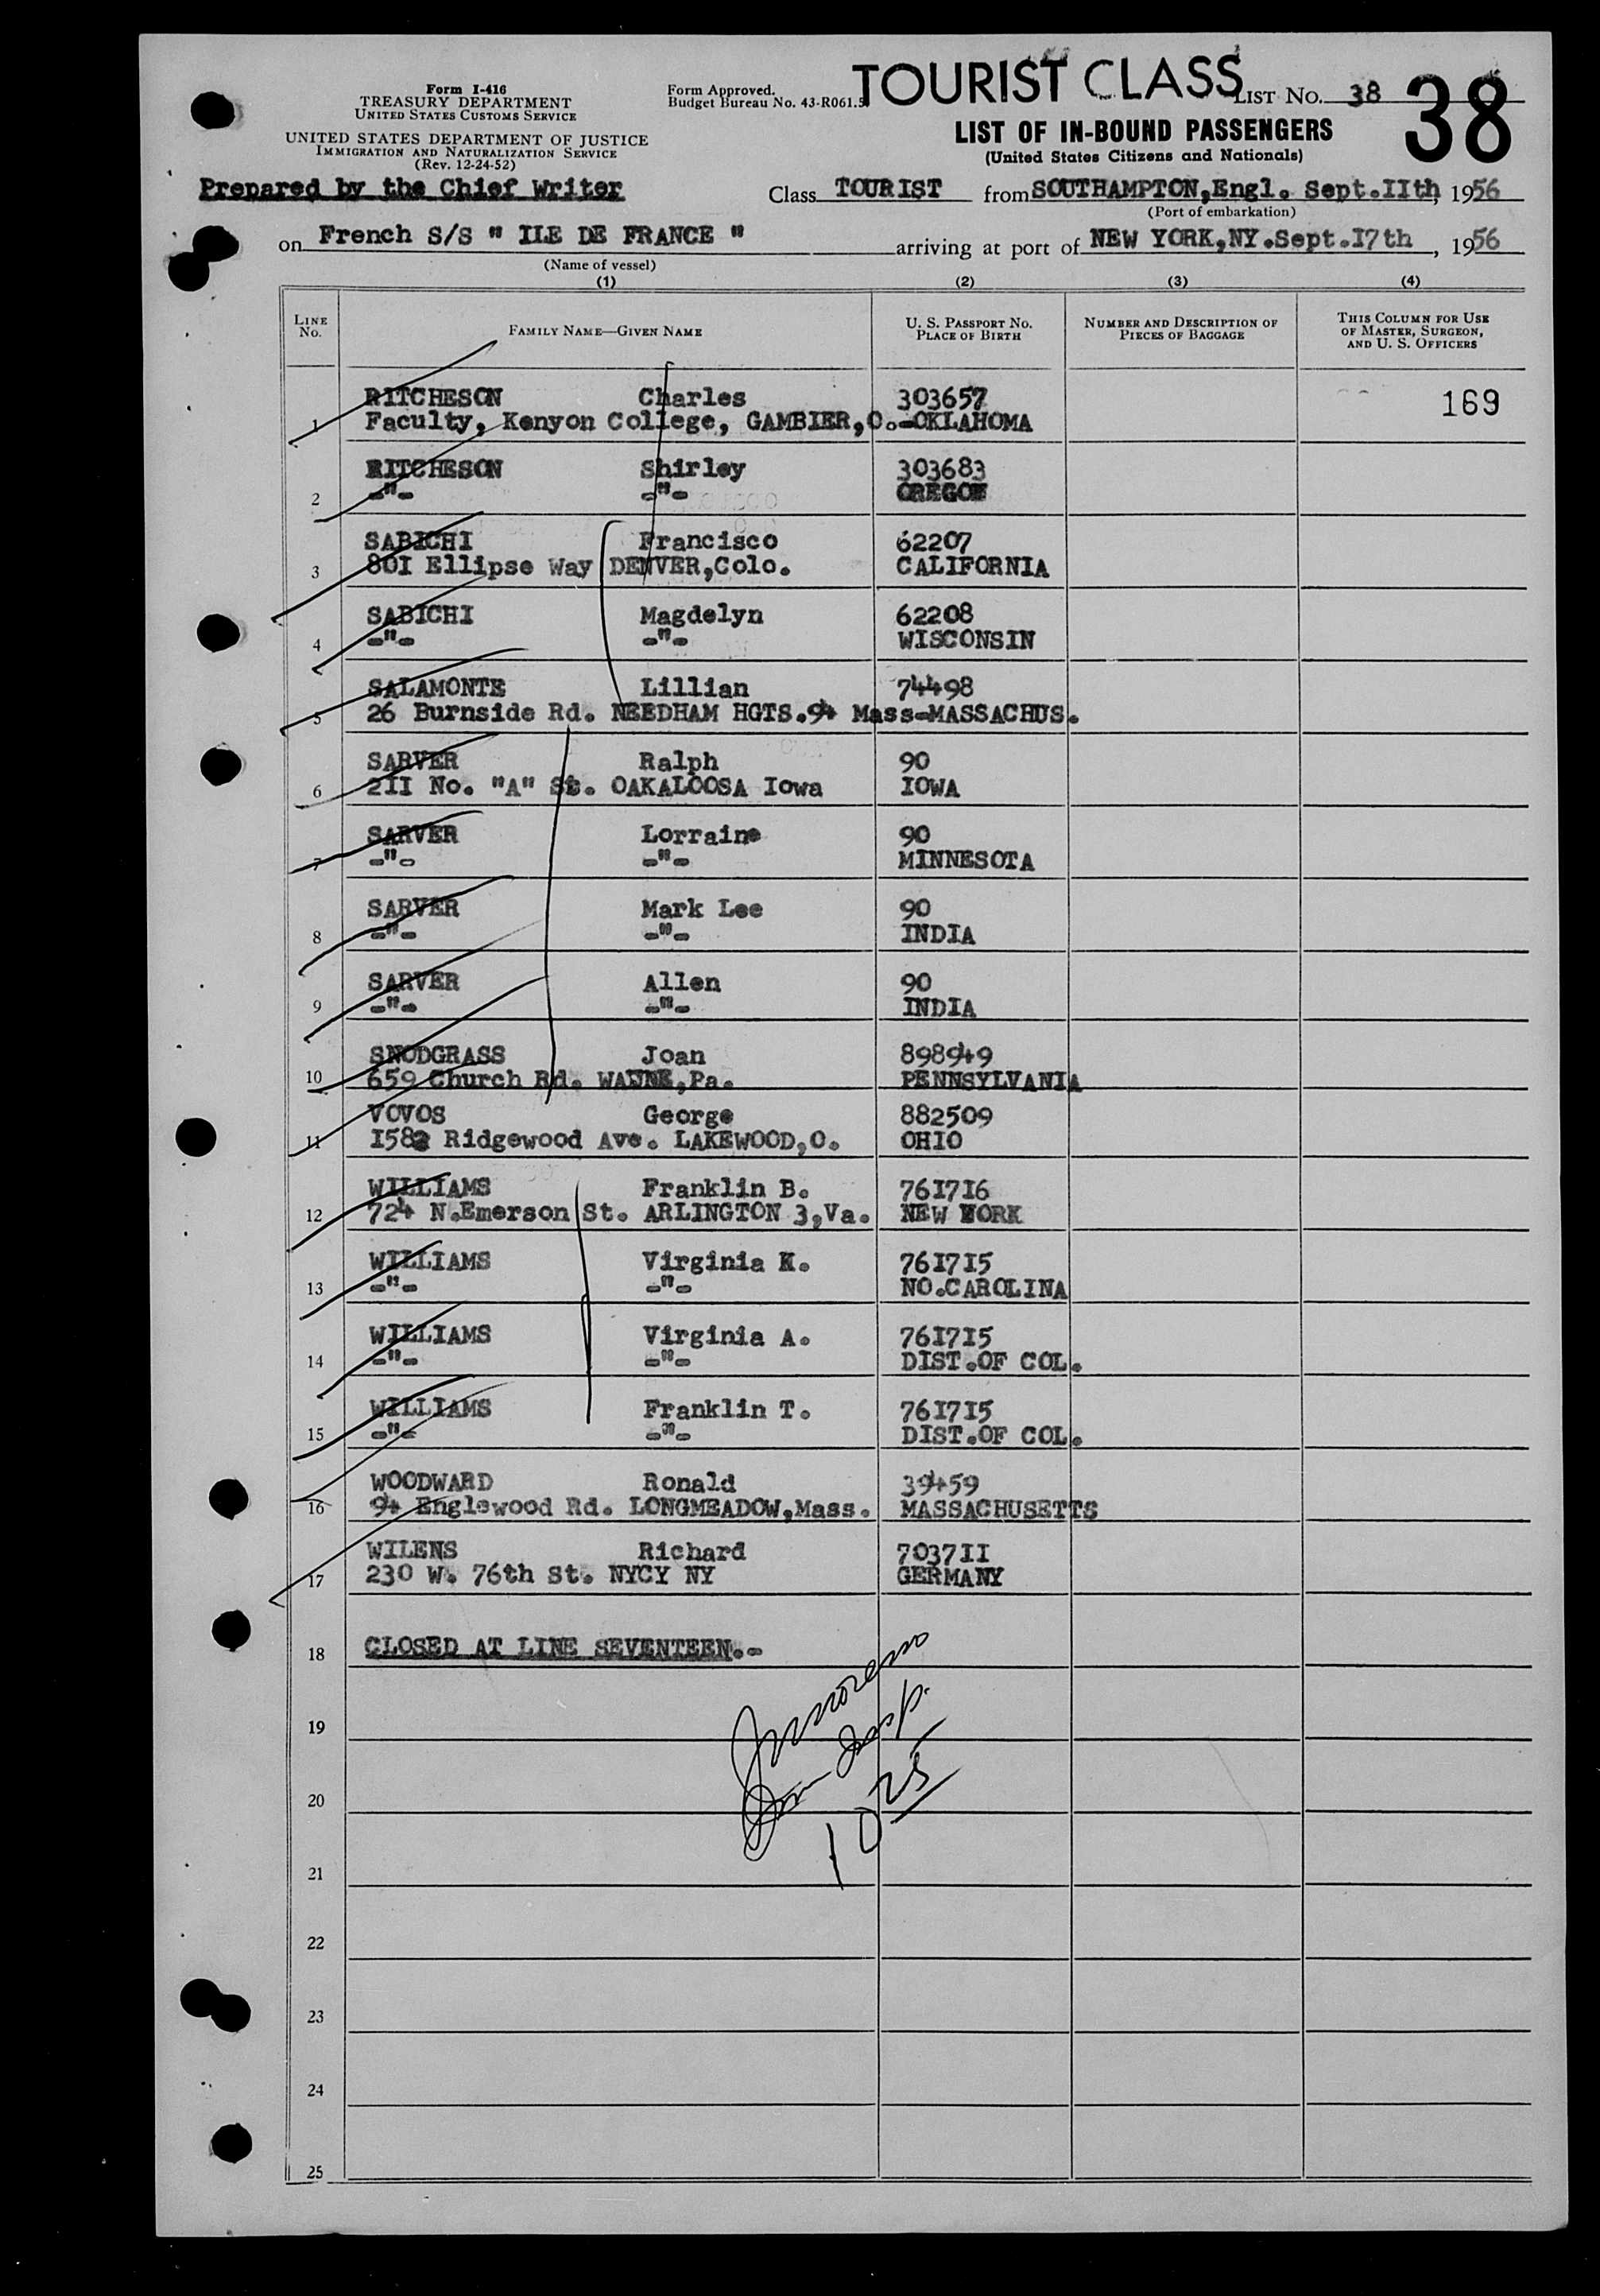 Form I-416
TREASURY DEPARTMENT
UNITED STATES CUSTOMS SERVICE
UNITED STATES DEPARTMENT OF JUSTICE
IMMIGRATION AND NATURALIZATION SERVICE
(Rev. 12-24-52)
Form Approved.
Budget Bureau No. 43-R061.5
TOURIST CLASS
LIST NO. 38
38
LIST OF IN-BOUND PASSENGERS
(United States Citizens and Nationals)
Prepared by the Chief Writer
Class TOURIST from SOUTHAMPTON,Engl. Sept.IIth, 1956
(Port of embarkation)
on French S/S " ILE DE FRANCE " arriving at port of NEW YORK,NY.Sept.I7th, 1956
(Name of vessel)
(1) (2) (3) (4)
LINE NO. FAMILY NAME—GIVEN NAME U. S. PASSPORT NO. PLACE OF BIRTH NUMBER AND DESCRIPTION OF PIECES OF BAGGAGE THIS COLUMN FOR USE OF MASTER, SURGEON, AND U. S. OFFICERS
RITCHESON Charles 303657 169
1 Faculty, Kenyon College, GAMBIER,O.-OKLAHOMA
RITCHESON Shirley 303683
2 -"- -"- OREGON
SABICHI Francisco 62207
3 80I Ellipse Way DENVER,Colo. CALIFORNIA
SABICHI Magdelyn 62208
4 -"- -"- WISCONSIN
SALAMONTE Lillian 74498
5 26 Burnside Rd. NEEDHAM HGTS.94 Mass-MASSACHUS.
SARVER Ralph 90
6 2II No. "A" St. OAKALOOSA Iowa IOWA
SARVER Lorraine 90
7 -"- -"- MINNESOTA
SARVER Mark Lee 90
8 -"- -"- INDIA
SARVER Allen 90
9 -"- -"- INDIA
SNODGRASS Joan 898949
10 659 Church Rd. WAYNE,Pa. PENNSYLVANIA
VOVOS George 882509
11 I582 Ridgewood Ave. LAKEWOOD,O. OHIO
WILLIAMS Franklin B. 76I7I6
12 724 N.Emerson St. ARLINGTON 3,Va. NEW YORK
WILLIAMS Virginia K. 76I7I5
13 -"- -"- NO.CAROLINA
WILLIAMS Virginia A. 76I7I5
14 -"- -"- DIST.OF COL.
WILLIAMS Franklin T. 76I7I5
15 -"- -"- DIST.OF COL.
WOODWARD Ronald 39459
16 94 Englewood Rd. LONGMEADOW,Mass. MASSACHUSETTS
WILENS Richard 7037II
17 230 W. 76th St. NYCY NY GERMANY
18 CLOSED AT LINE SEVENTEEN.-
19
20
10 25
21
22
23
24
25